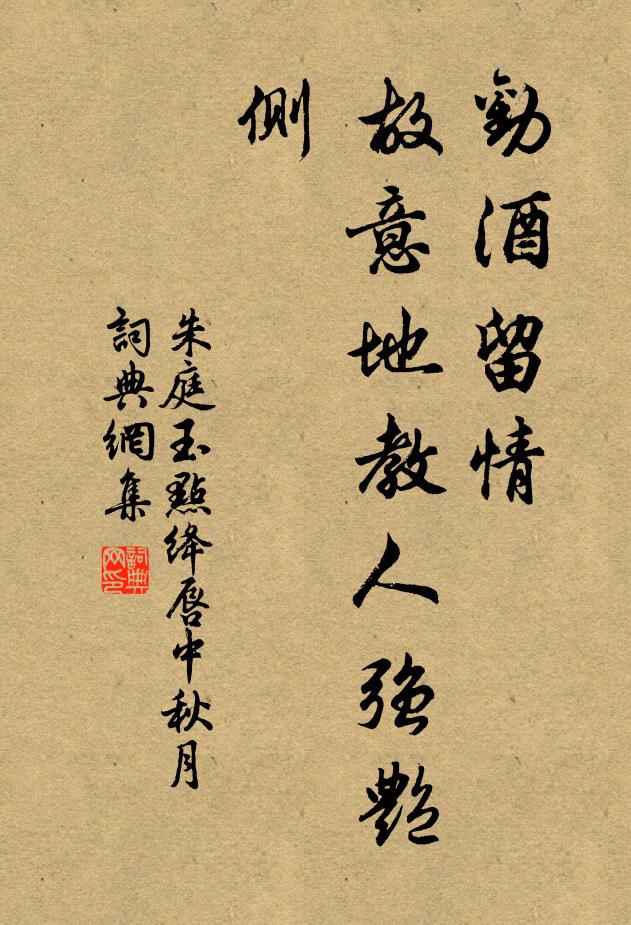 勸酒留情
故意地教人強艷
側
朱庭玉點絳唇中秋月
詞典網集
詞典网印